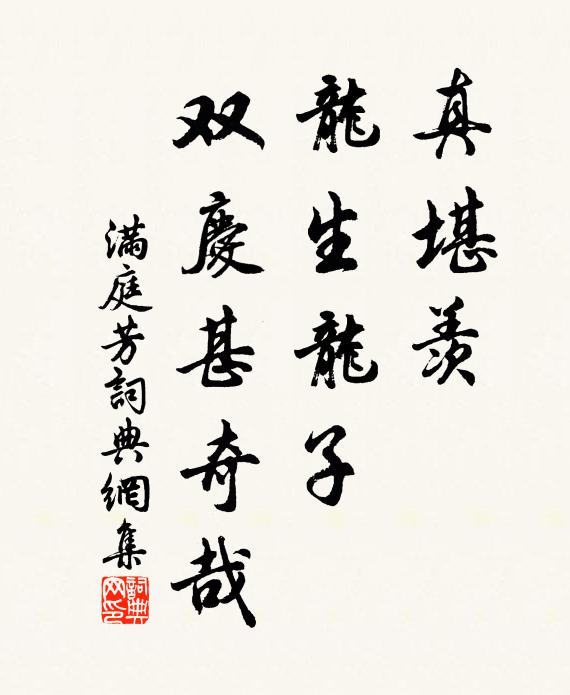 真堪羨
龍生龍子
双慶甚奇哉
滿庭芳詞典網集
詞典
网印